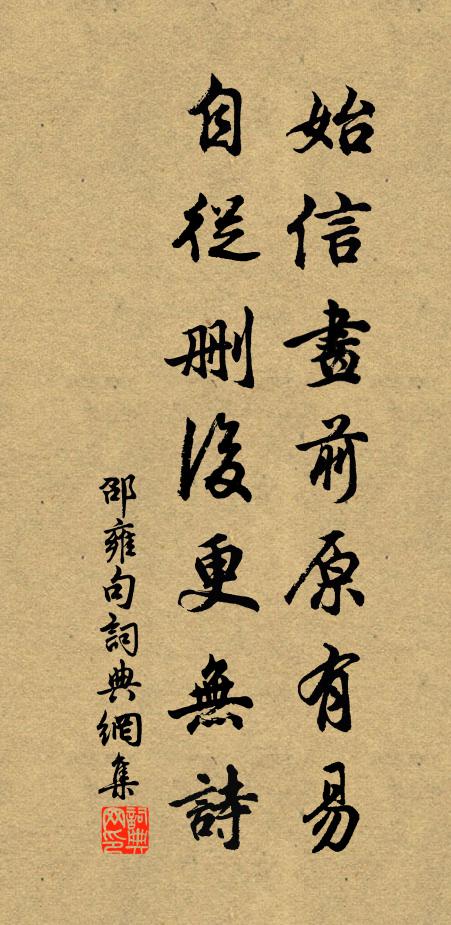 始信畫前原有易
自從刪後更無詩
邵雍句詞典網集
詞典網印